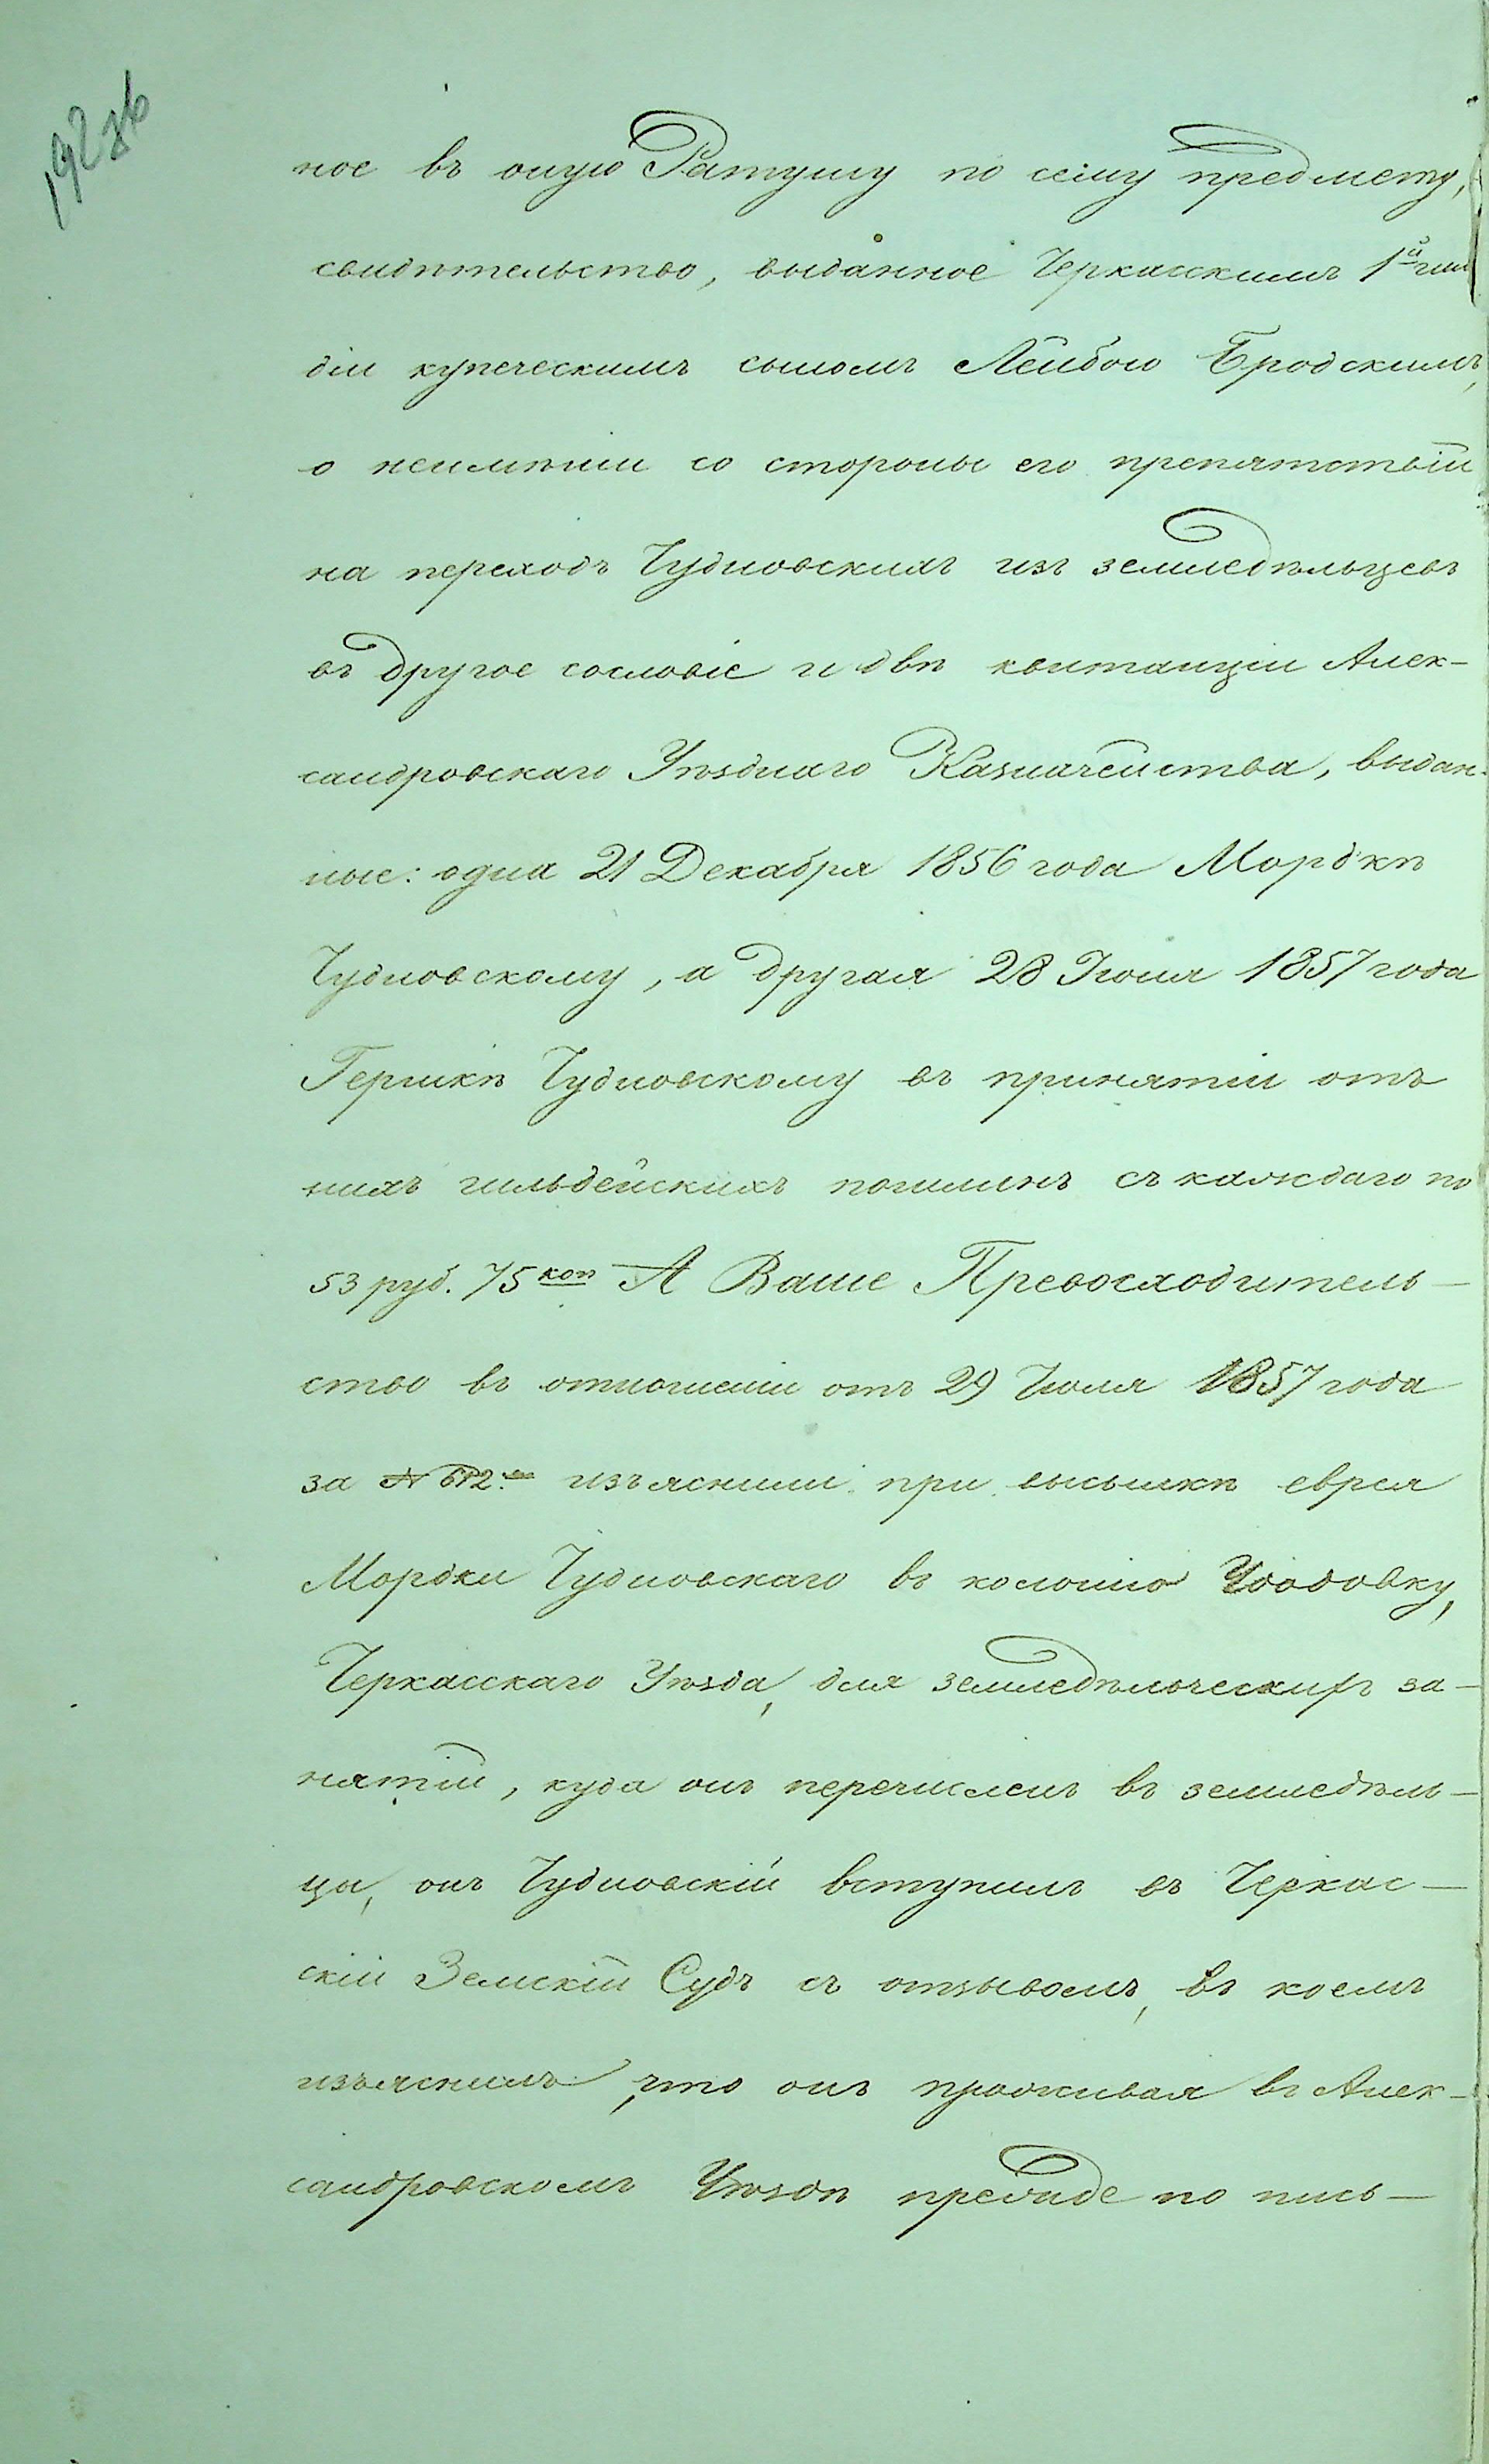 192 зв
ное въ оную Ратушу по сему предмету,
свидѣтельство, выданное Черкасскимъ 1й гил
діи купеческимъ сыномъ Лейбою Бродскимъ,
о неимѣніи со стороны его препятствій
на переходъ Чудновскихъ изъ земледѣльцевъ
въ другое сословіе и двѣ квитанціи Алек-
сандровскаго Уѣзднаго Казначейства, выдан-
ные: одна 21 Декабря 1856 года Мордкѣ
Чудновскому, а другая 28 Іюня 1857 года
Гершкѣ Чудновскому въ принятіи отъ
нихъ гильдейскихъ пошлинъ съ каждаго по
53 руб. 75 коп А Ваше Превосходитель-
ство въ отношеніи отъ 29 Іюля 1857 года
за № изъяснили при высылкѣ еврея
Мордки Чудновскаго въ колонію
Черкасскаго Уѣзда, для земледѣльческихъ за-
нятій, куда онъ перечисленъ въ земледѣль-
цы, онъ Чудновскій вступилъ въ Черкас-
скій Земскій Судъ съ отзывомъ, въ коемъ
изъяснилъ, что онъ проживая въ Алек-
сандровскомъ Уѣздѣ прежде по пись-